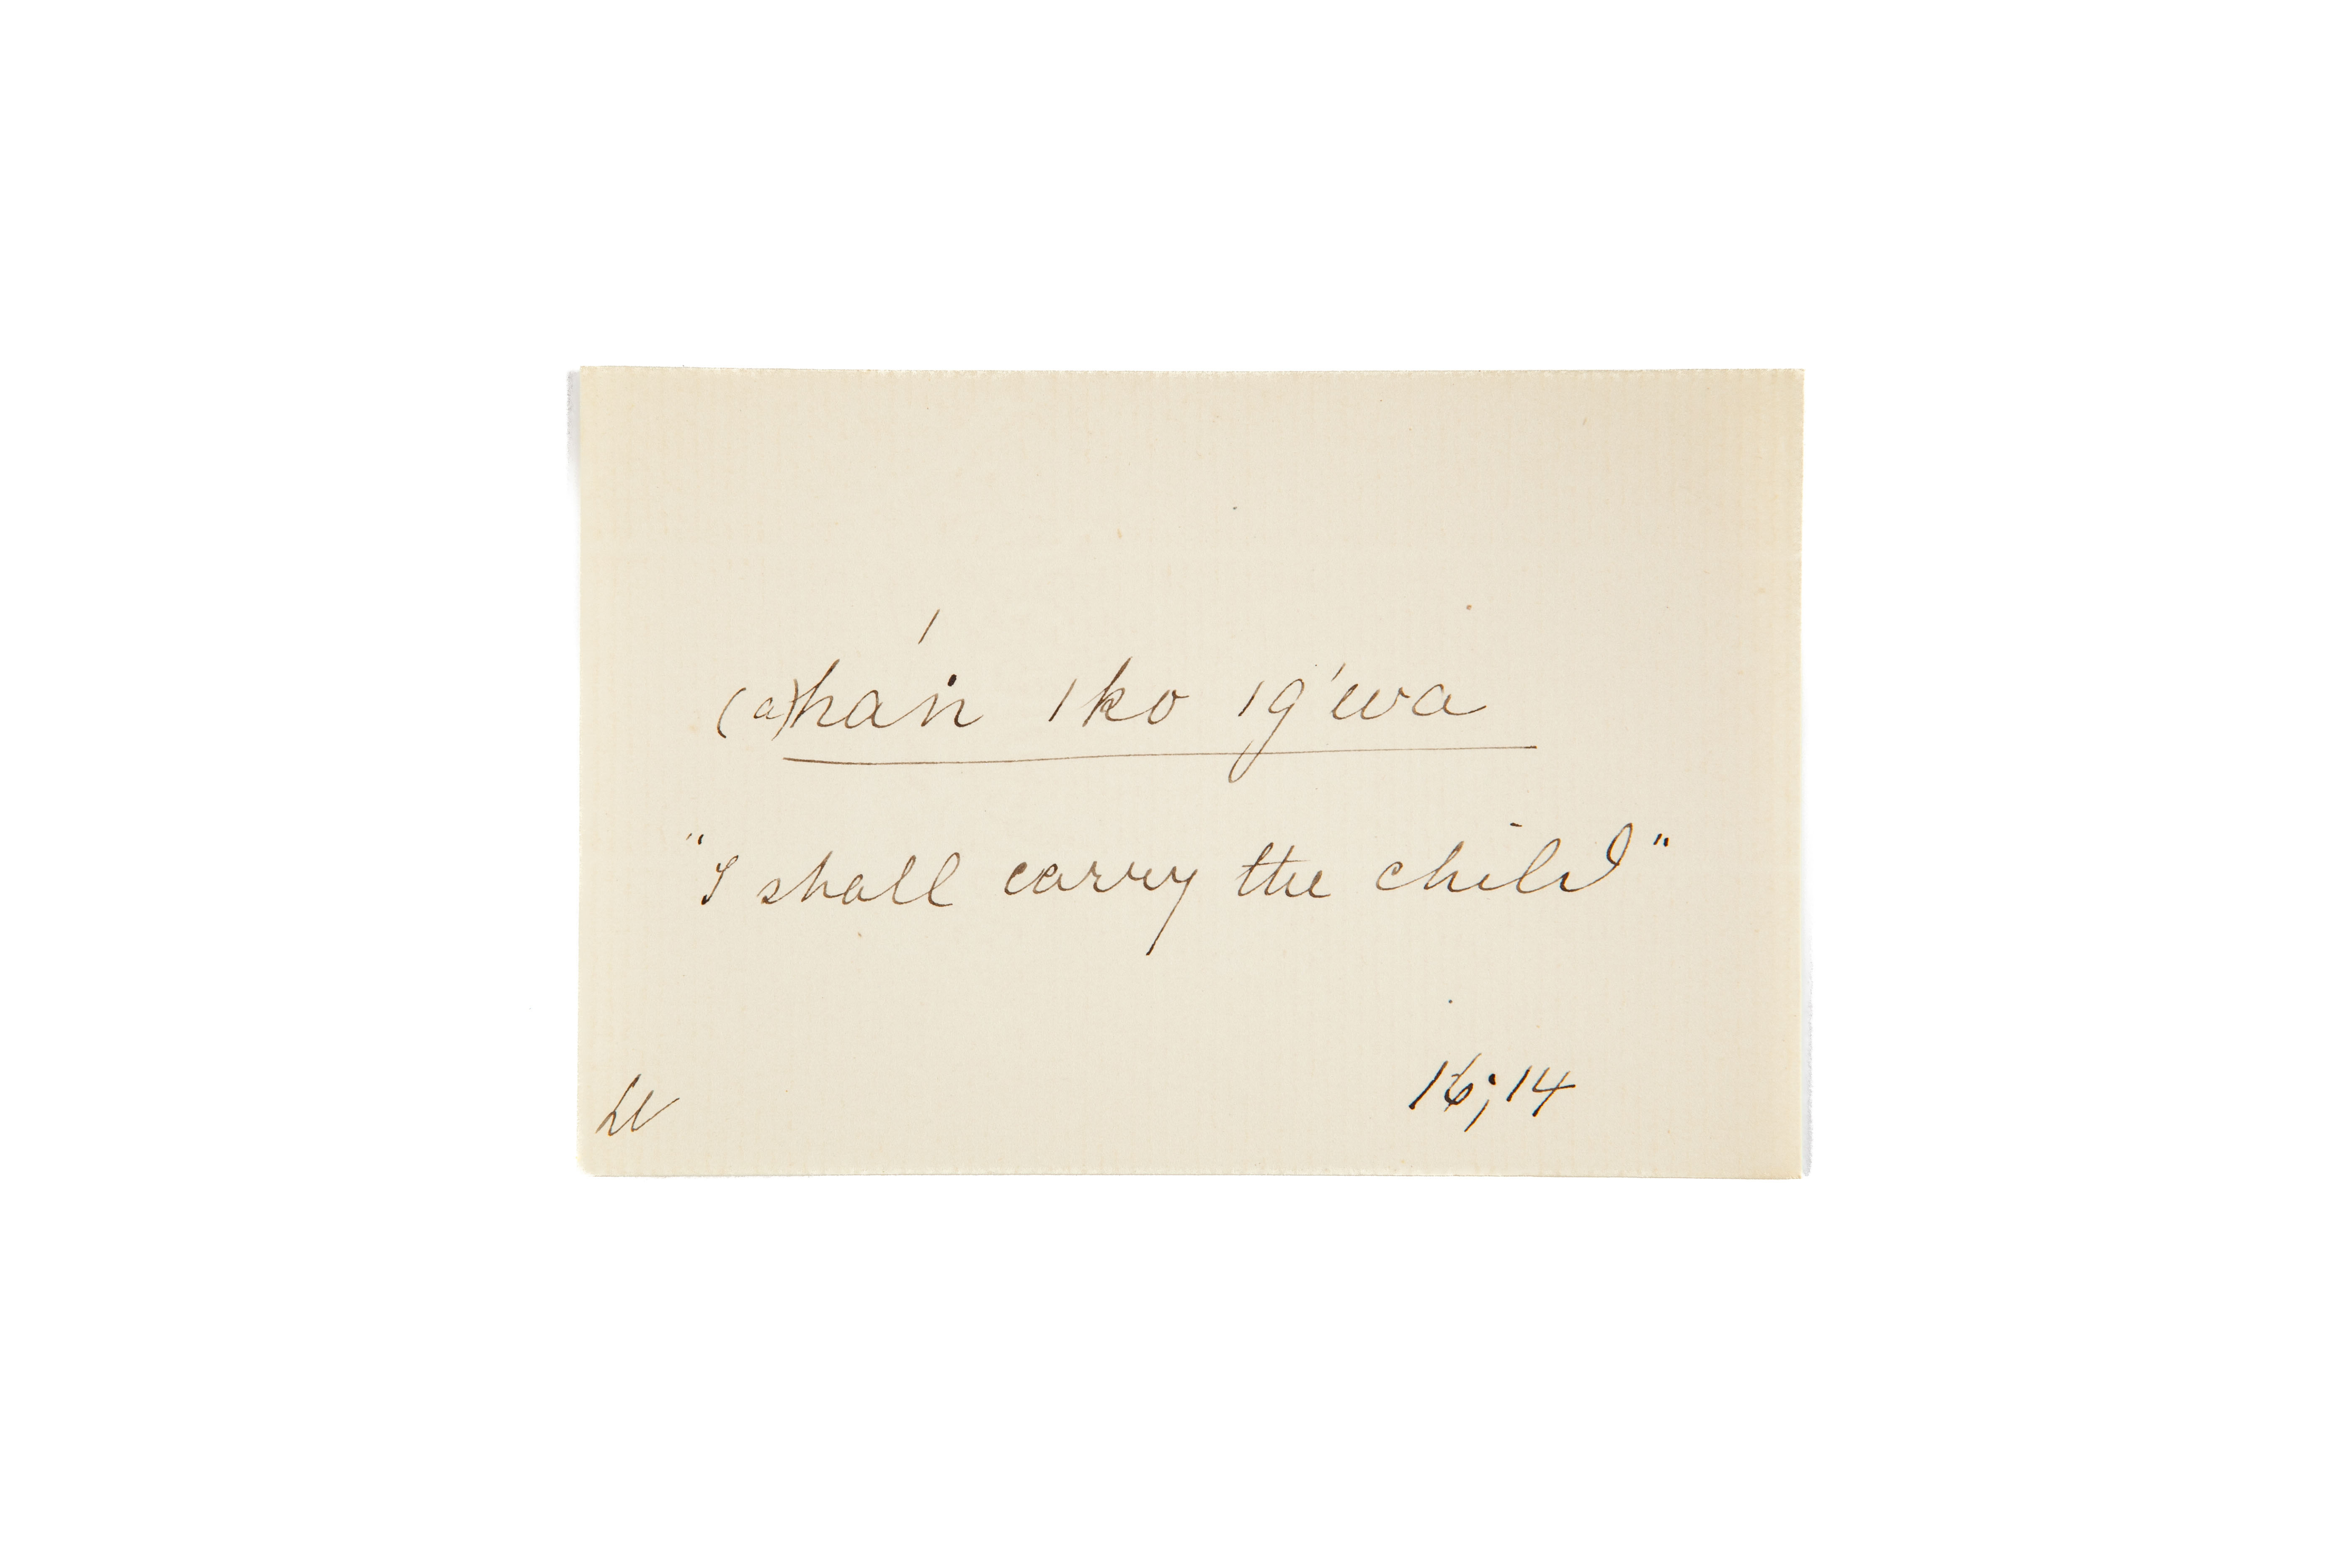 (a)háṅ ıko ıg'ewa
"I shall carry the child"
16;14